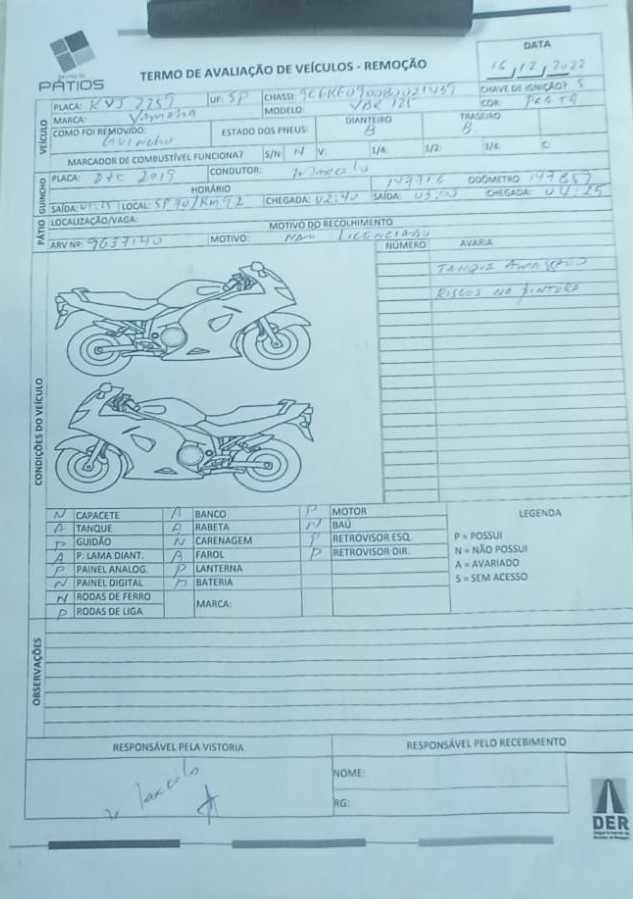 DATA
16/12/2022
PÁTIOS
TERMO DE AVALIAÇÃO DE VEÍCULOS - REMOÇÃO
PLACA: UF: SP CHASSI: CHAVE DE IGNIÇÃO? S
MARCA: Yamaha MODELO: YBR 125 COR: PRETA
VEÍCULO
COMO FOI REMOVIDO: Guincho ESTADO DOS PNEUS: DIANTEIRO B TRASEIRO B
MARCADOR DE COMBUSTÍVEL FUNCIONA? S/N: N V: 1/4: 1/2: 3/4: C:
GUINCHO
PLACA: 2019 CONDUTOR: Marcelo ODOMETRO
HORÁRIO
SAÍDA: 01:25 LOCAL: SP 70/KM92 CHEGADA: 02:40 SAÍDA: 03:00 CHEGADA: 04:25
PÁTIO
LOCALIZAÇÃO/VAGA: MOTIVO DO RECOLHIMENTO
ARV Nº: 9637140 MOTIVO: NAO LICENCIADO
NÚMERO AVARIA
TANQUE AMASSADO
RISCOS NA PINTURA
CONDIÇÕES DO VEÍCULO
N CAPACETE A BANCO P MOTOR LEGENDA
A TANQUE A RABETA N BAÚ
P GUIDÃO N CARENAGEM P RETROVISOR ESQ. P = POSSUI
A P. LAMA DIANT. A FAROL P RETROVISOR DIR. N = NÃO POSSUI
P PAINEL ANALOG. P LANTERNA A = AVARIADO
N PAINEL DIGITAL P BATERIA S = SEM ACESSO
N RODAS DE FERRO MARCA:
P RODAS DE LIGA
OBSERVAÇÕES
RESPONSÁVEL PELA VISTORIA RESPONSÁVEL PELO RECEBIMENTO
NOME:
RG:
DER